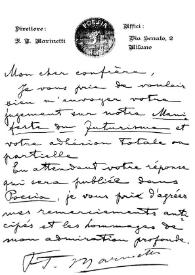 Direttore:
F. T. Marinetti
POESIA
Uffici:
Via Senato, 2
Milano
Mon cher confrère,
Je vous prie de vouloir
bien m'envoyer votre
jugement sur notre Mani-
feste du Futurisme et
votre adhésion totale ou
partielle.
En attendant votre réponse
qui sera publiée dans
Poesia, je vous prie d'agréer
mes remerciements anti-
cipés et les hommages de
mon admiration profonde.
F. T. Marinetti